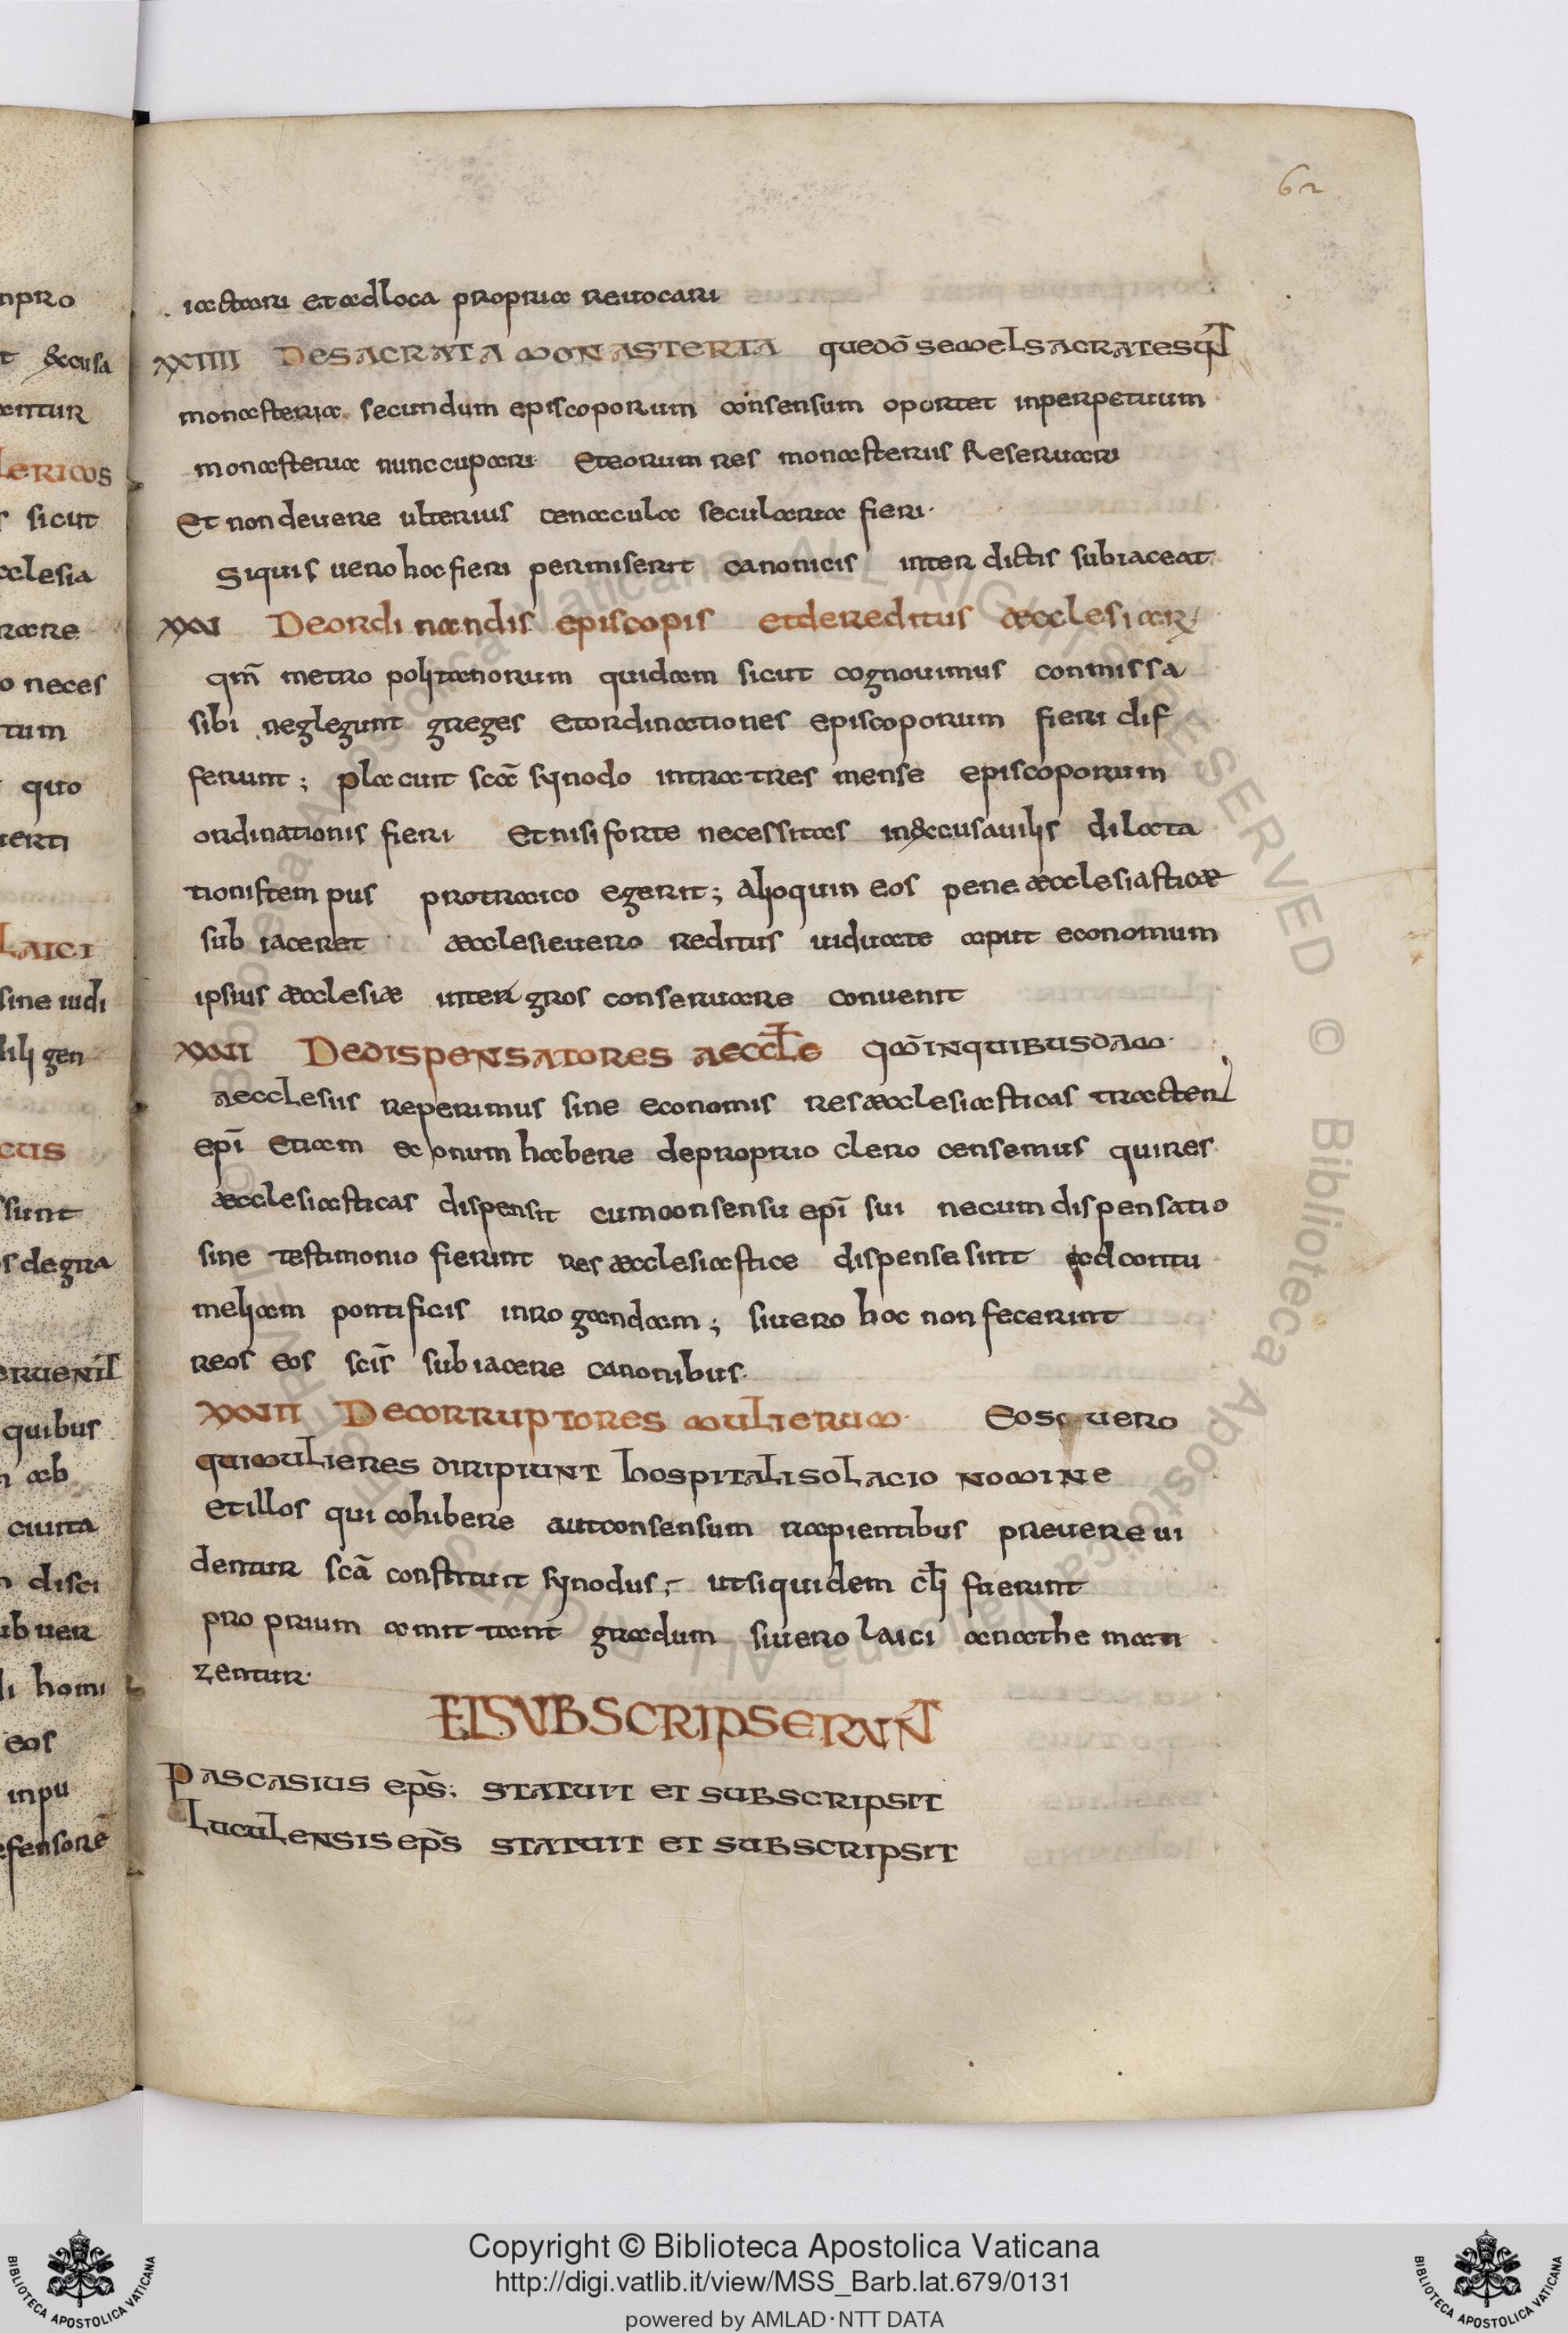 62
npro
t &cusa
antur
lericos
s sicut
cclesia
rare
o neces
tum
quo
uerti
Laici
sine iudi
dili gen
cus
sunt
s degra
eruenīt
quibus
ab
ciuita
disci
ub uer
di homi
eos
inpu
efensorē
iactari et ad loca propria reuocari
XXIIII DE SACRATA MONASTERIA quedō semel sacrate sūt
monasteria secundum episcoporum consensum oportet inperpetuum
monasteria nunccupari Et eorum res monasteriis Reseruari
Et non deuere ulterius cenacula secularia fieri·
Siquis uero hoc fieri permiserit canonicis inter dictis subiaceat
XXV De ordi nandis episcopis et de reditus æcclesiar
qm̄ metro politanorum quidam sicut cognouimus conmissa
sibi neglegunt greges et ordinationes episcoporum fieri dif
ferunt; placuit scā synodo intra tres mense episcoporum
ordinationis fieri Et nisi forte necessitas in&cusauilis dilata
tionis tem pus protraico egerit; Alioquin eos pene æcclesiasticae
sub iaceret æcclesie uero reditus uiduate aput economum
ipsius æcclesiæ inter gros conseruare conuenit
XXVI De dispensatores aeccłe qm̄ inquibusdam
aecclesiis reperimus sine economis res æcclesiasticas tractari
epī etiam ec onum habere de proprio clero censemus qui res
æcclesiasticas dispensit cum consensu epī sui necum dispensatio
sine testimonio fierint res æcclesiastice dispense sint ad contu
meliam pontificis inro gandam; si uero hoc non fecerint
reos eos scīs subiacere canonibus·
XXVII De corruptores mulierum· Eos uero
qui mulieres diripiunt hospitali solacio nomine
et illos qui cohibere aut consensum rapientibus preuere ui
dentur scā constituit synodus; ut siquidem cłi fuerint
pro prium amit tant gradum si uero laici anathe mati
zentur·
ET SVBSCRIPSERVNT
Pascasius ep̄s; statuit et subscripsit
Luculensis ep̄s statuit et subscripsit
Copyright © Biblioteca Apostolica Vaticana
http://digi.vatlib.it/view/MSS_Barb.lat.679/0131
powered by AMLAD·NTT DATA
BIBLIOTECA APOSTOLICA VATICANA
BIBLIOTECA APOSTOLICA VATICANA